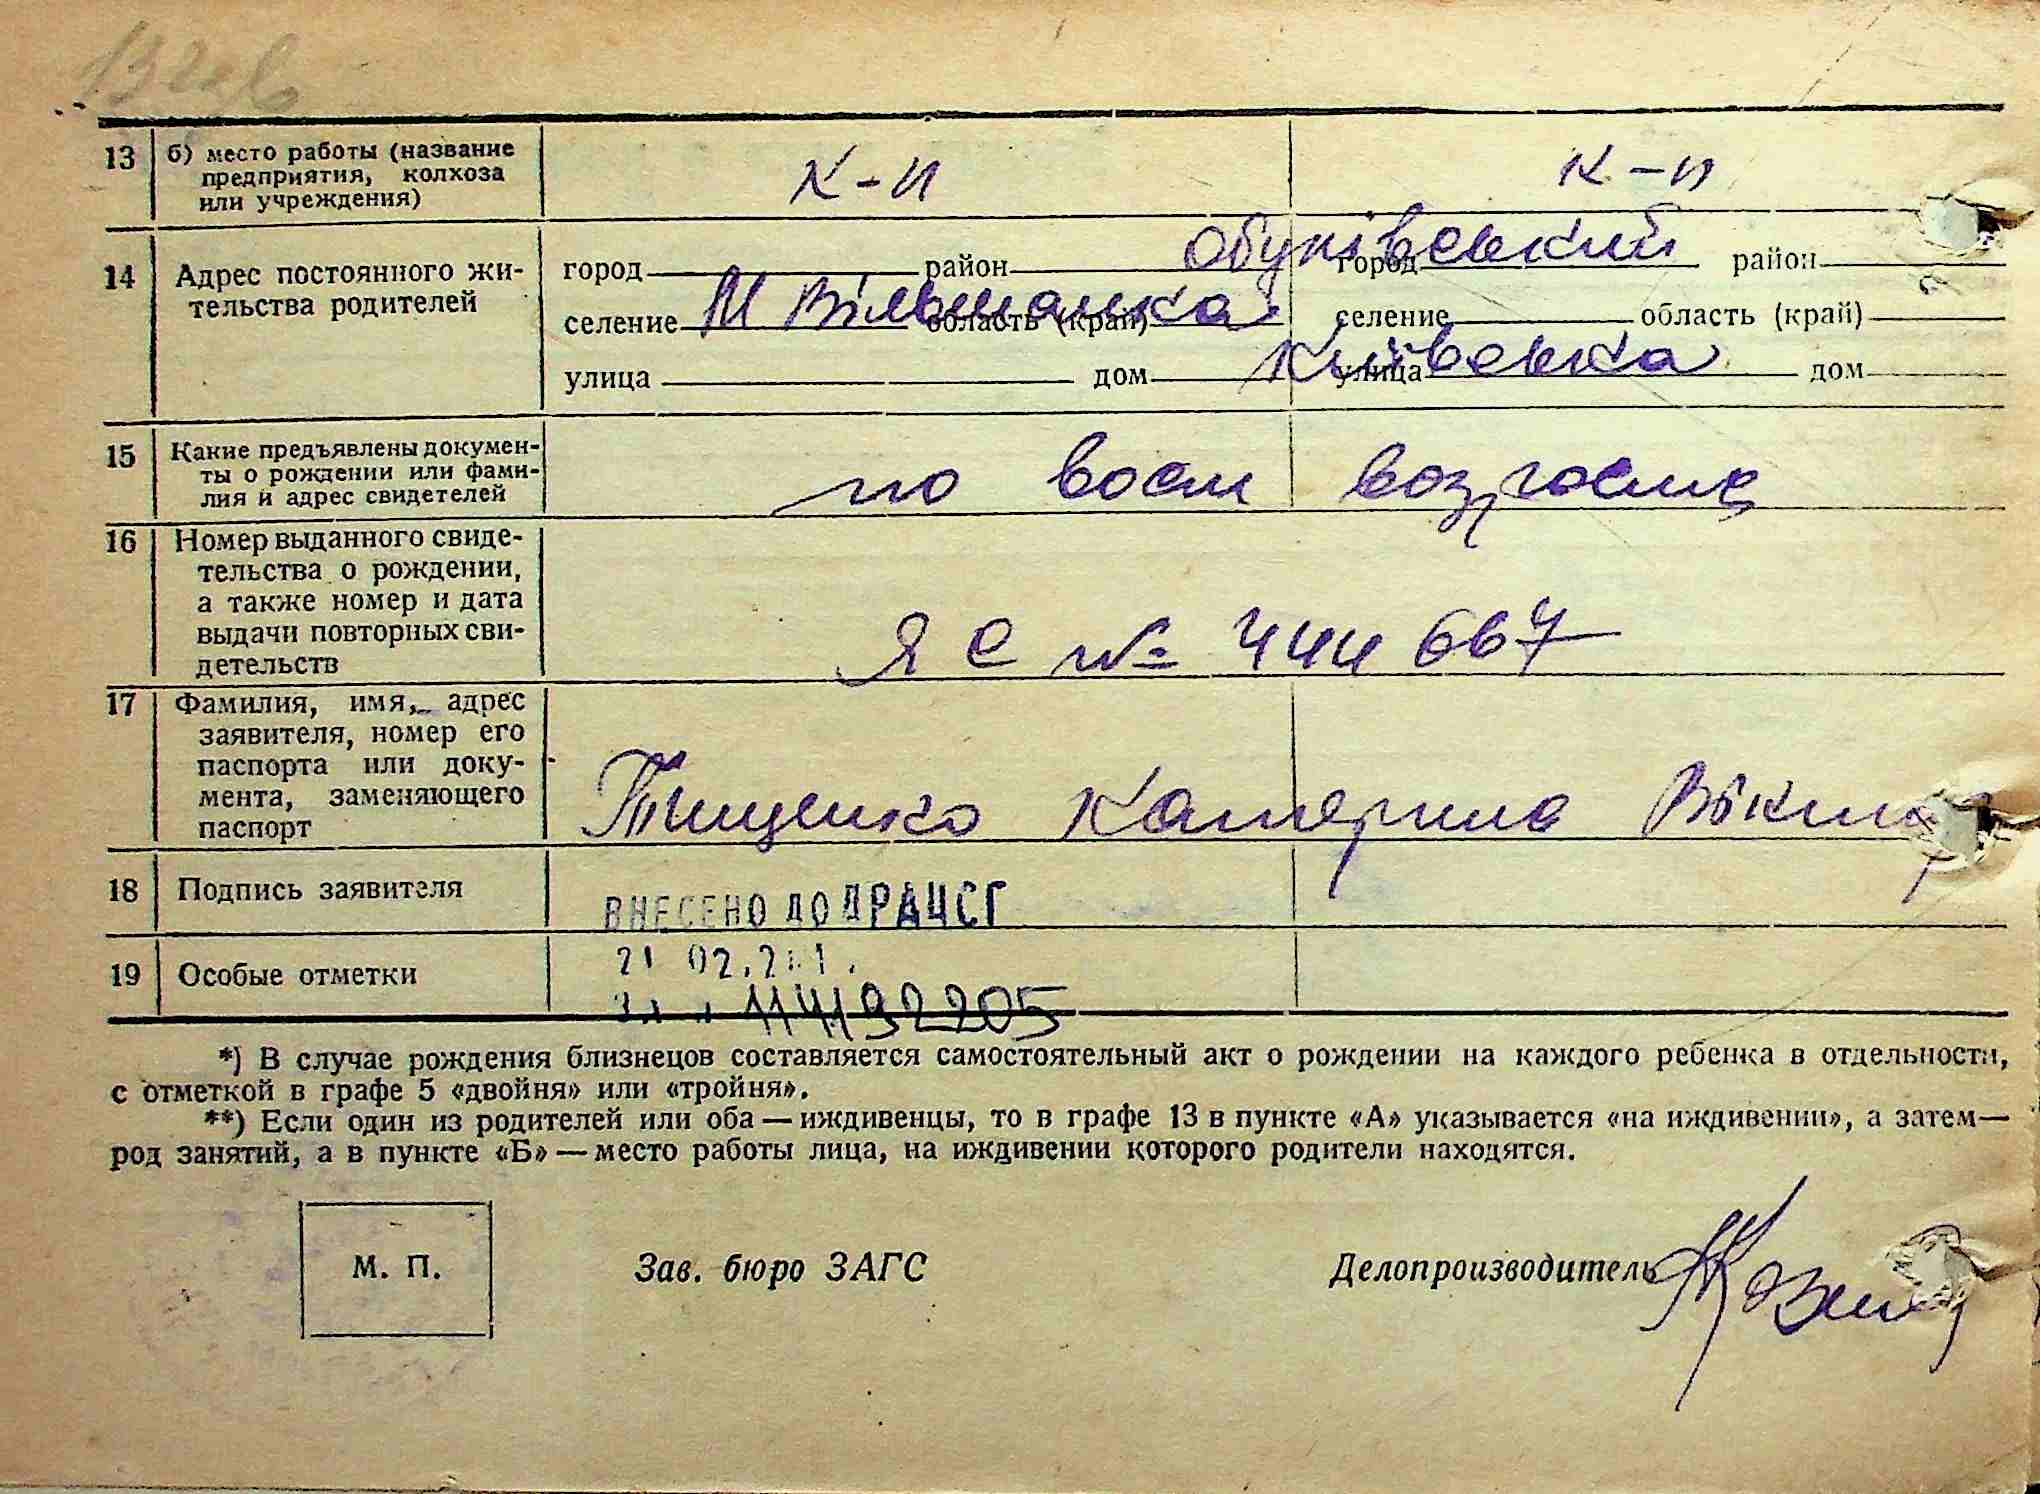 13 б) место работы (название
предприятия, колхоза
или учреждения)
К-п К-п
14 Адрес постоянного жи-
тельства родителей
город район Обухівський город район
селение М Вільшанка область (край) селение область (край)
улица дом Київська улица дом
15 Какие предъявлены докумен-
ты о рождении или фами-
лия и адрес свидетелей
по возрасту
16 Номер выданного свиде-
тельства о рождении,
а также номер и дата
выдачи повторных сви-
детельств
Я С № 444 667
17 Фамилия, имя, адрес
заявителя, номер его
паспорта или доку-
мента, заменяющего
паспорт
Тищенко Катерина
18 Подпись заявителя
ВНЕСЕНО ДО ДРАЦСГ
19 Особые отметки
21 02.
114192205
*) В случае рождения близнецов составляется самостоятельный акт о рождении на каждого ребенка в отдельности,
с отметкой в графе 5 «двойня» или «тройня».
**) Если один из родителей или оба — иждивенцы, то в графе 13 в пункте «А» указывается «на иждивении», а затем—
род занятий, а в пункте «Б» — место работы лица, на иждивении которого родители находятся.
М. П. Зав. бюро ЗАГС Делопроизводитель